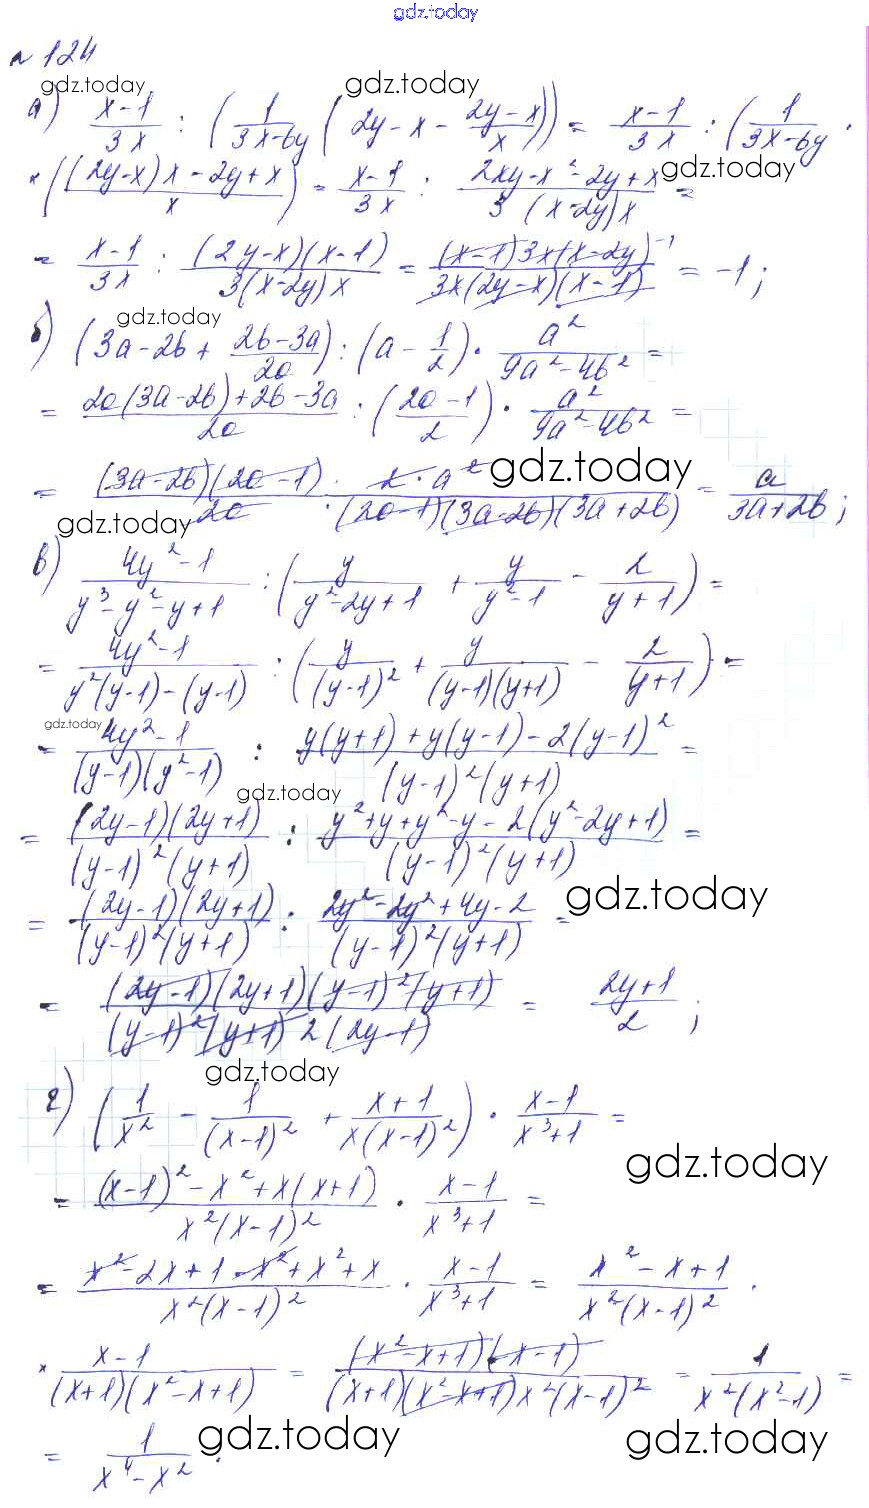 gdz.today
№ 124
gdz.today gdz.today
а) (x-1)/(3x) : (1/(3x-6y) (2y-x - (2y-x)/x)) = (x-1)/(3x) : (1/(3x-6y) ·
gdz.today
× ((2y-x)x - 2y+x)/x) = (x-1)/(3x) : (2xy-x²-2y+x)/(3(x-2y)x) =
= (x-1)/(3x) : ((2y-x)(x-1))/(3(x-2y)x) = ((x-1)3x(x-2y)⁻¹)/(3x(2y-x)(x-1)) = -1;
gdz.today
б) (3a-2b + (2b-3a)/(2a)) : (a - 1/2) · a²/(9a²-4b²) =
= (2a(3a-2b)+2b-3a)/(2a) : ((2a-1)/2) · a²/(9a²-4b²) =
gdz.today
= ((3a-2b)(2a-1))/(2a) · (2·a²)/((2a-1)(3a-2b)(3a+2b)) = a/(3a+2b);
gdz.today
в) (4y²-1)/(y³-y²-y+1) : (y/(y²-2y+1) + y/(y²-1) - 2/(y+1)) =
= (4y²-1)/(y²(y-1)-(y-1)) : (y/(y-1)² + y/((y-1)(y+1)) - 2/(y+1)) =
gdz.today
= (4y²-1)/((y-1)(y²-1)) : (y(y+1)+y(y-1)-2(y-1)²)/((y-1)²(y+1)) =
gdz.today
= ((2y-1)(2y+1))/((y-1)²(y+1)) : (y²+y+y²-y-2(y²-2y+1))/((y-1)²(y+1)) =
gdz.today
= ((2y-1)(2y+1))/((y-1)²(y+1)) : (2y²-2y²+4y-2)/((y-1)²(y+1)) =
= ((2y-1)(2y+1)(y-1)²(y+1))/((y-1)²(y+1)2(2y-1)) = (2y+1)/2;
gdz.today
г) (1/x² - 1/(x-1)² + (x+1)/(x(x-1)²)) · (x-1)/(x³+1) =
gdz.today
= ((x-1)²-x²+x(x+1))/(x²(x-1)²) · (x-1)/(x³+1) =
= (x²-2x+1-x²+x²+x)/(x²(x-1)²) · (x-1)/(x³+1) = (x²-x+1)/(x²(x-1)²) ·
× (x-1)/((x+1)(x²-x+1)) = ((x²-x+1)(x-1))/((x+1)(x²-x+1)x²(x-1)²) = 1/(x²(x²-1)) =
gdz.today gdz.today
= 1/(x⁴-x²).